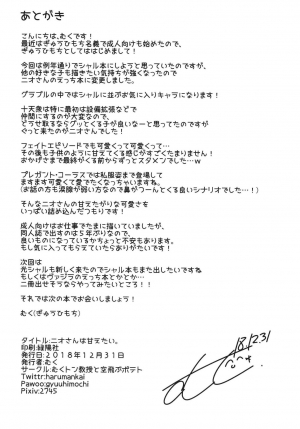 あとがき
こんにちは、むくです！
最近はぎゅうひもち名義で成人向けも始めたので、
ぎゅうひもちとしてははじめまして！
今回は例年通りでシャル本にしようと思っていたのですが、
他の好きな子も描きたい気持ちが強くなったので
ニオさんでえっちな本に変更しました。
グラブルの中ではシャルに並ぶお気に入りキャラになります！
十天衆は特に最初は設備拡張などで
仲間にするのが大変なので、
どうせ取るならグッとくる子が良いなーと思ってたのですが
ぐっと来たのがニオさんでした！
フェイトエピソードでも可愛くって可愛くって…
その後も子供のように甘えてくる感じがすごくたまりません！
おかげさまで最終がくる前からずっとスタメンでした…w
プレガント・コーラスでは私服姿まで登場して
ますます可愛くて愛でたくなっちゃいますね。
(お話の方も涙腺が弱い方なので鼻がツーんとくる良いシナリオでした…！)
そんなニオさんの甘えたがりな可愛さを
いっぱい詰め込んだつもりです！
成人向けはお仕事でたまに描いていましたが、
同人誌で出すのは5年ぶりなので、
良いものになっているかちょっと不安もあります。
もし気に入ってもらえていたらありがたいです！
次回は
元シャルも新しく来たのでシャル本もまた出したいですね
もしくはヴァジラのえっち本とかとか…
二冊出せそうならやってみたいところ！！
それでは次の本でお会いしましょう！
むく(ぎゅうひもち)
'18.12.31
タイトル:ニオさんは甘えたい。
印刷:緑陽社
発行日:2018年12月31日
発行者:むく
サークル:むくトン教授と空飛ぶポテト
Twitter:harumankai
Pawoo:gyuuhimochi
Pixiv:2745